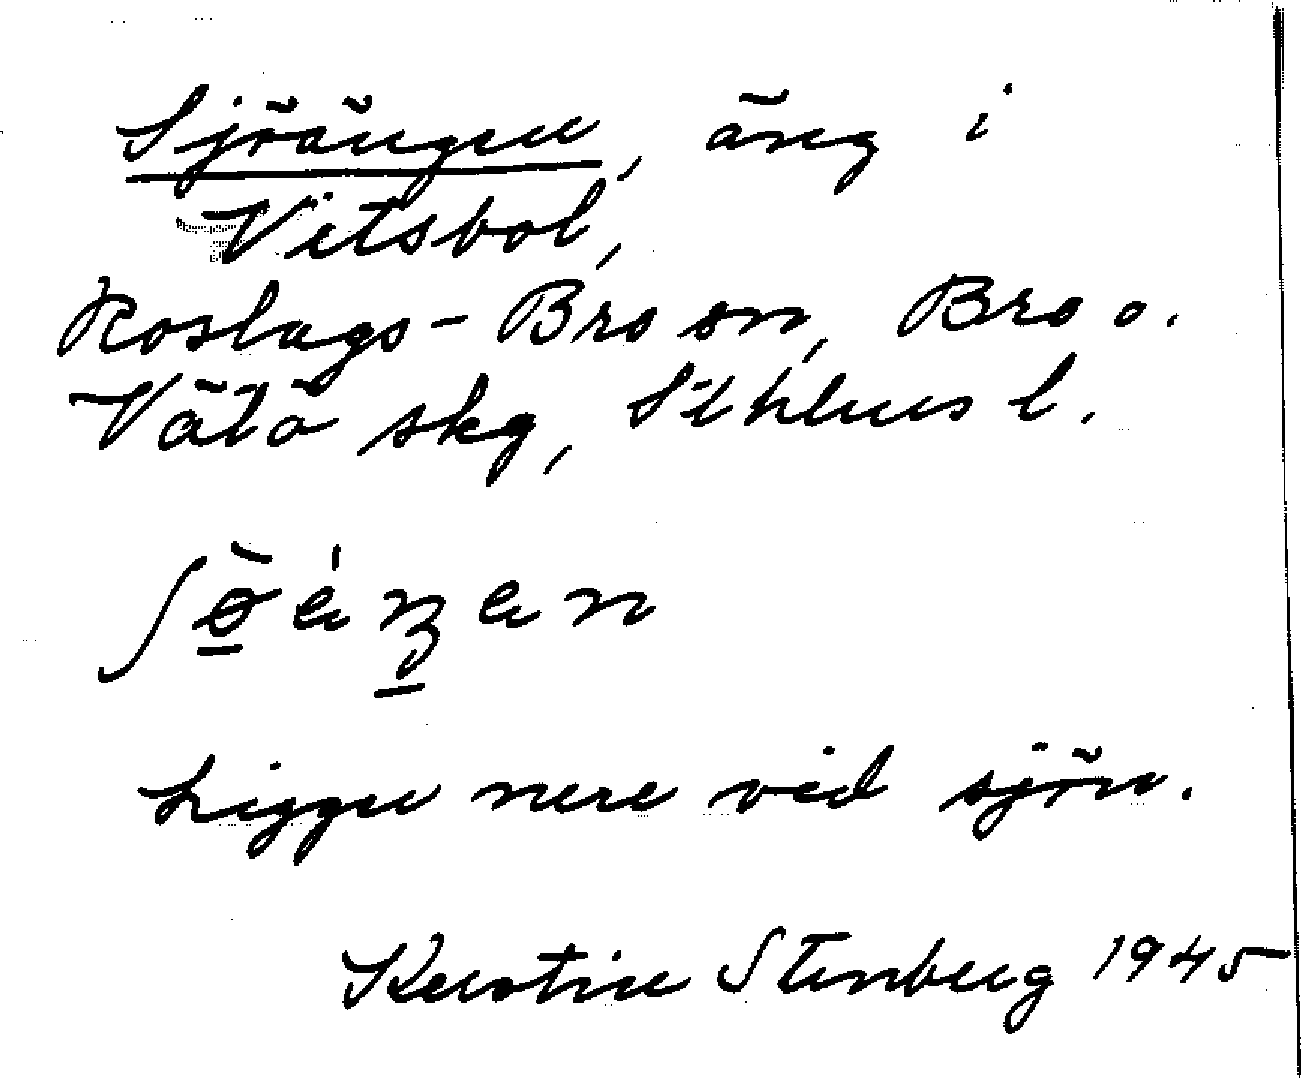 Sjöängen, äng i
Vitsbol,
Roslags-Bro sn, Bro o.
Vätö skg, Sthlms l.
Ligger nere vid sjön.
Kerstin Stenberg 1945